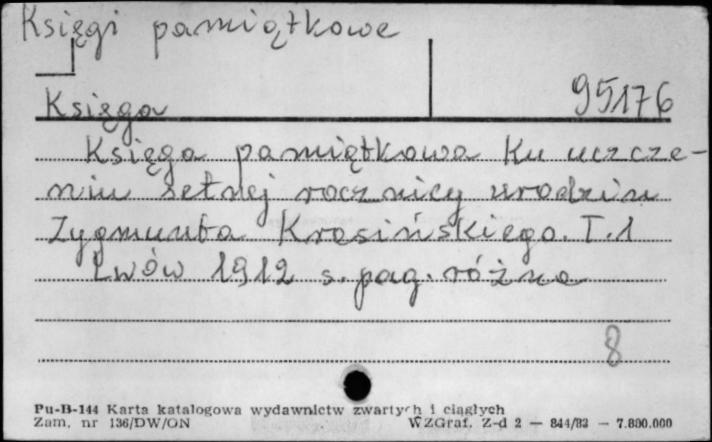 Księgi pamiątkowe
Księga 95176
Księga pamiątkowa ku uczcze-
niu setnej rocznicy urodzin
Zygmunta Krasińskiego. T. 1
Lwów 1912 s. pag. różna
8
Pu-B-144 Karta katalogowa wydawnictw zwartych i ciągłych
Zam. nr 136/DW/ON WZGraf. Z-d 2 — 844/83 — 7.800.000